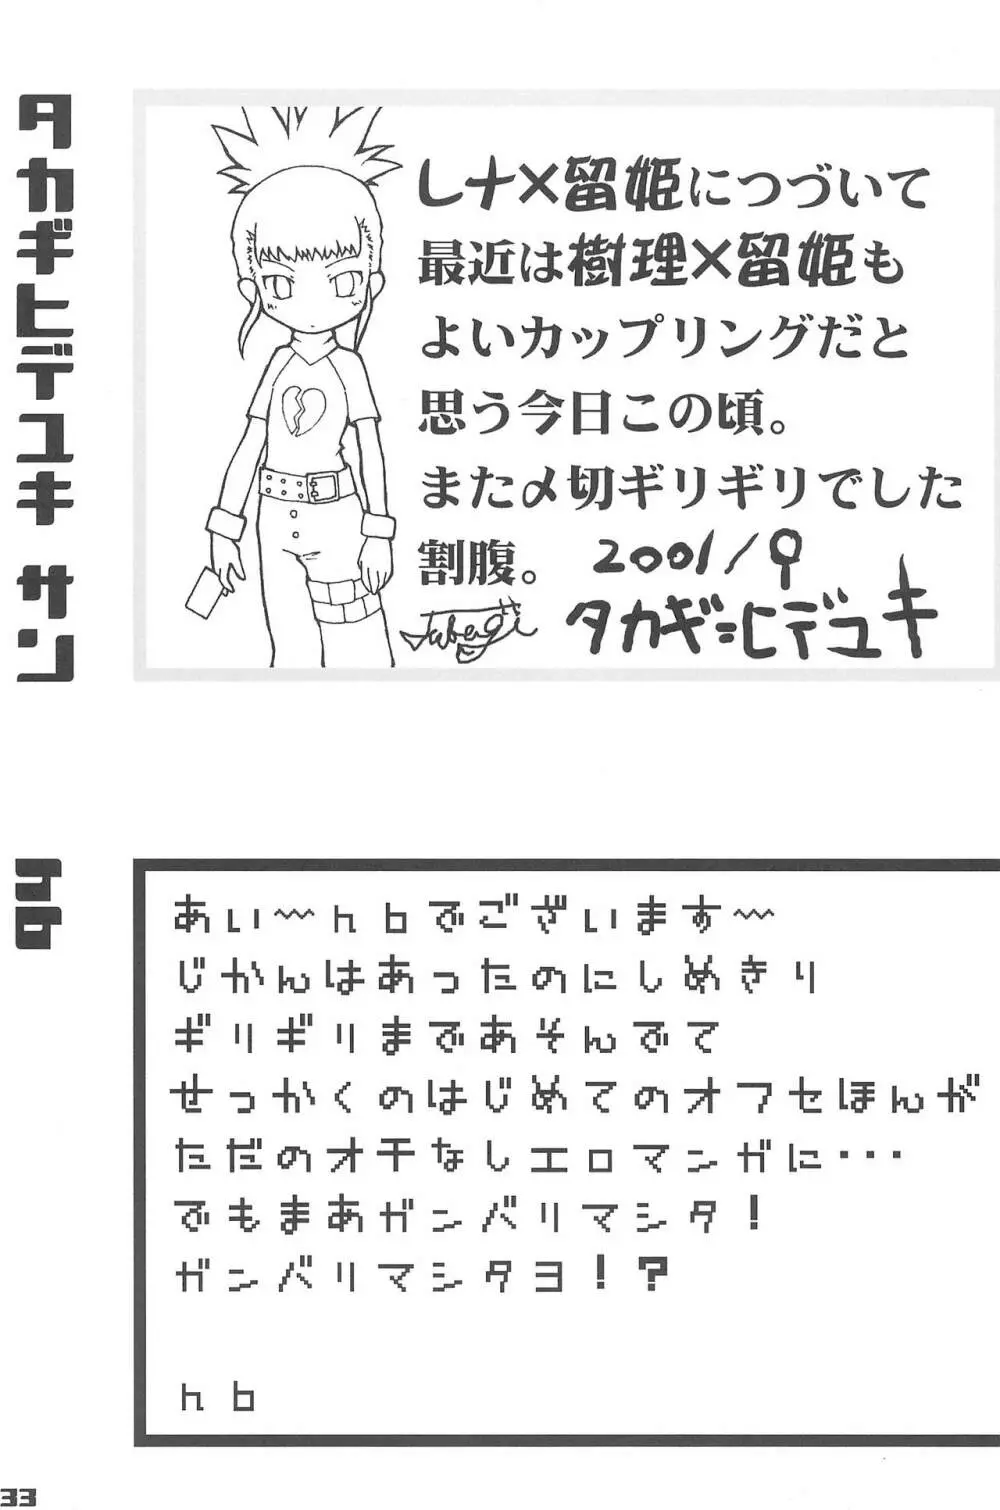 タカギヒデユキ サン
レナ×留姫につづいて
最近は樹理×留姫も
よいカップリングだと
思う今日この頃。
また〆切ギリギリでした
割腹。 2001/9
Tabagi
タカギ=ヒデユキ
hb
あい〜hbでございます〜
じかんはあったのにしめきり
ギリギリまであそんでて
せっかくのはじめてのオフセほんが
ただのオチなしエロマンガに・・・
でもまあガンバリマシタ!
ガンバリマシタヨ!?
hb
33